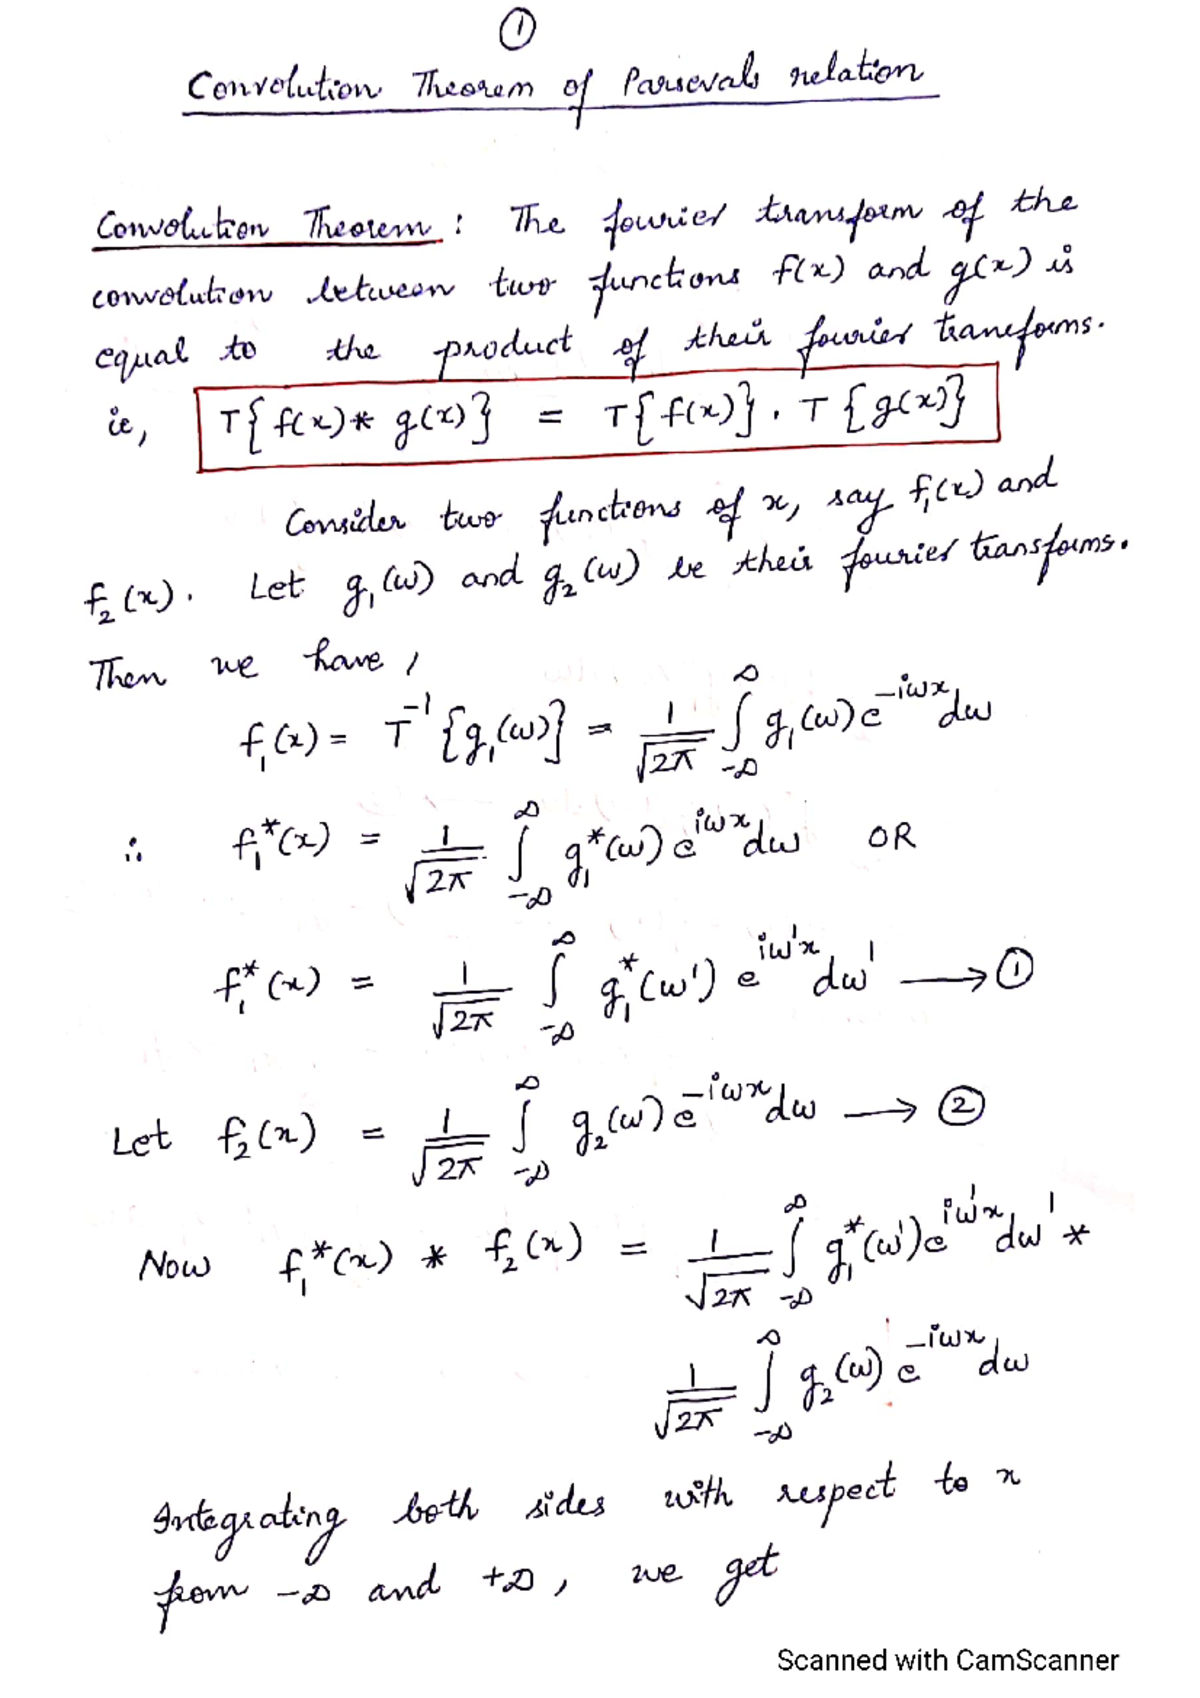 ①
Convolution Theorem of Parsevals relation
Convolution Theorem : The fourier transform of the
convolution between two functions f(x) and g(x) is
equal to the product of their fourier transforms.
ie, T{f(x)* g(x)} = T{f(x)} . T{g(x)}
Consider two functions of x, say f₁(x) and
f₂(x). Let g₁(ω) and g₂(ω) be their fourier transforms.
Then we have,
f₁(x) = T⁻¹{g₁(ω)} = 1/√2π ∫_{-∞}^{∞} g₁(ω) e^{-iωx} dω
∴ f₁*(x) = 1/√2π ∫_{-∞}^{∞} g₁*(ω) e^{iωx} dω OR
f₁*(x) = 1/√2π ∫_{-∞}^{∞} g₁*(ω') e^{iω'x} dω' ⟶ ①
Let f₂(x) = 1/√2π ∫_{-∞}^{∞} g₂(ω) e^{-iωx} dω ⟶ ②
Now f₁*(x) * f₂(x) = 1/√2π ∫_{-∞}^{∞} g₁*(ω') e^{iω'x} dω' *
1/√2π ∫_{-∞}^{∞} g₂(ω) e^{-iωx} dω
Integrating both sides with respect to x
from -∞ and +∞, we get
Scanned with CamScanner